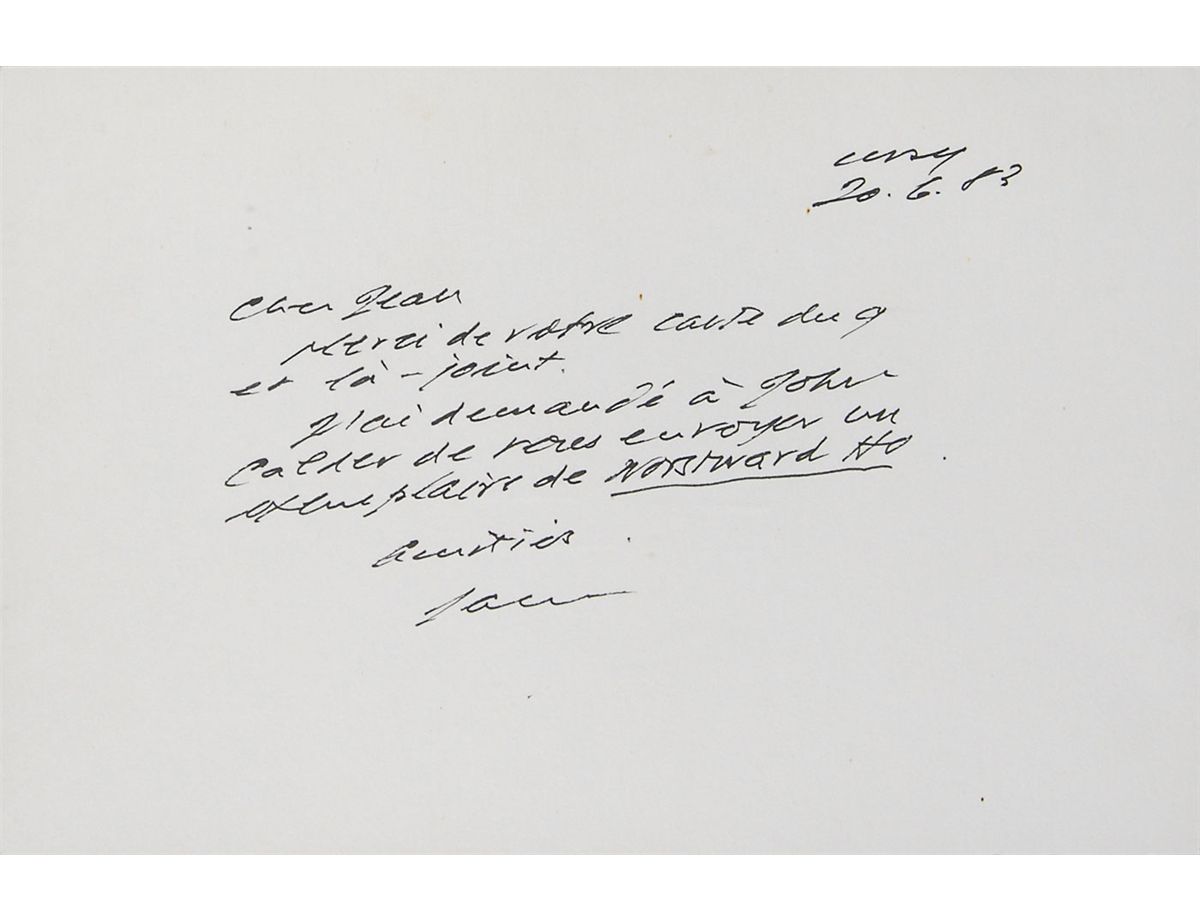 Ussy
20.6.83
Cher Jean
Merci de votre carte du 9
et là-joint.
J'ai demandé à John
Calder de vous envoyer un
exemplaire de Worstward Ho.
Amitiés.
Sam